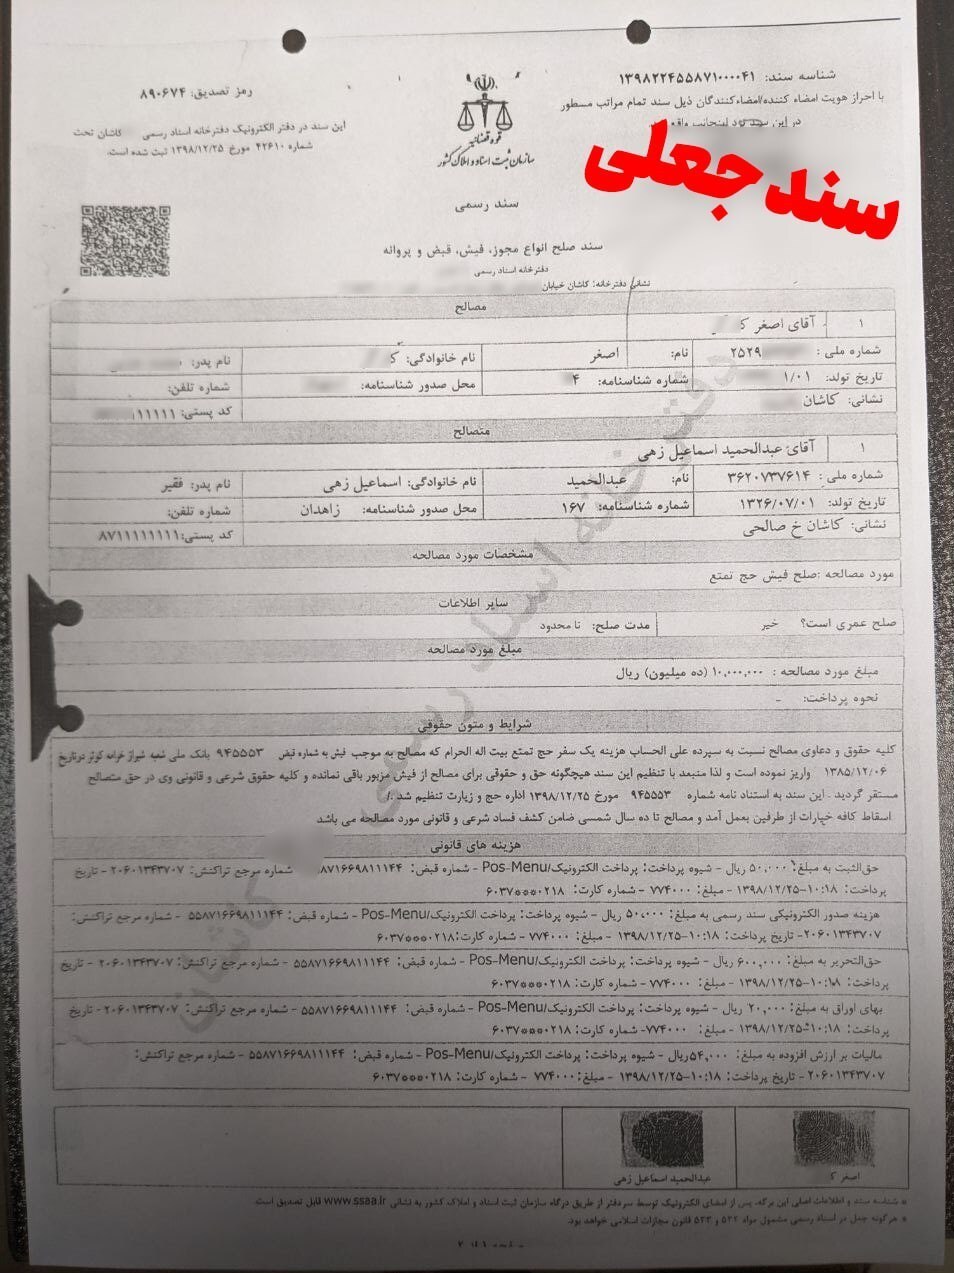 شناسه سند: ۱۳۹۸۲۲۴۵۵۸۷۱۰۰۰۰۴۱
با احراز هویت امضاء کننده/امضاءکنندگان ذیل سند تمام مراتب مسطور
در این سند نزد اینجانب واقع
سند جعلی
قوه قضائیه
سازمان ثبت اسناد و املاک کشور
رمز تصدیق: ۸۹۰۶۷۴
این سند در دفتر الکترونیک دفترخانه اسناد رسمی کاشان تحت
شماره ۴۲۶۱۰ مورخ ۱۳۹۸/۱۲/۲۵ ثبت شده است.
سند رسمی
سند صلح انواع مجوز، فیش، قبض و پروانه
دفترخانه اسناد رسمی
نشانی دفترخانه: کاشان خیابان
مصالح
۱ آقای اصغر ک
شماره ملی: ۲۵۲۹ نام: اصغر نام خانوادگی: ک نام پدر:
تاریخ تولد: ۱/۰۱ شماره شناسنامه: ۴ محل صدور شناسنامه: شماره تلفن:
نشانی: کاشان کد پستی: ۱۱۱۱۱۱
متصالح
۱ آقای عبدالحمید اسماعیل زهی
شماره ملی: ۳۶۲۰۷۳۷۶۱۴ نام: عبدالحمید نام خانوادگی: اسماعیل زهی نام پدر: فقیر
تاریخ تولد: ۱۳۲۶/۰۷/۰۱ شماره شناسنامه: ۱۶۷ محل صدور شناسنامه: زاهدان شماره تلفن:
نشانی: کاشان خ صالحی کد پستی:۸۷۱۱۱۱۱۱۱۱
مشخصات مورد مصالحه
مورد مصالحه :صلح فیش حج تمتع
سایر اطلاعات
صلح عمری است؟ خیر مدت صلح: نا محدود
مبلغ مورد مصالحه
مبلغ مورد مصالحه : ۱۰,۰۰۰,۰۰۰ (ده میلیون) ریال
نحوه پرداخت: -
شرایط و متون حقوقی
کلیه حقوق و دعاوی مصالح نسبت به سپرده علی الحساب هزینه یک سفر حج تمتع بیت اله الحرام که مصالح به موجب فیش به شماره قبض ۹۴۵۵۵۳ بانک ملی شعبه شیراز خرانه کوثر درتاریخ
۱۳۸۵/۱۲/۰۶ واریز نموده است و لذا منبعد با تنظیم این سند هیچگونه حق و حقوقی برای مصالح از فیش مزبور باقی نمانده و کلیه حقوق شرعی و قانونی وی در حق متصالح
مستقر گردید . این سند به استناد نامه شماره ۹۴۵۵۵۳ مورخ ۱۳۹۸/۱۲/۲۵ اداره حج و زیارت تنظیم شد ./
اسقاط کافه خیارات از طرفین بعمل آمد و مصالح تا ده سال شمسی ضامن کشف فساد شرعی و قانونی مورد مصالحه می باشد
هزینه های قانونی
حق‌الثبت به مبلغ: ۵۰,۰۰۰ ریال - شیوه پرداخت: پرداخت الکترونیک/Pos-Menu - شماره قبض: ۸۷۱۶۶۹۸۱۱۱۴۴ شماره مرجع تراکنش: ۲۰۶۰۱۳۴۳۷۰۷ - تاریخ
پرداخت: ۱۰:۱۸-۱۳۹۸/۱۲/۲۵ - مبلغ: ۷۷۴۰۰۰ - شماره کارت: ۶۰۳۷***۰۲۱۸
هزینه صدور الکترونیکی سند رسمی به مبلغ: ۵۰,۰۰۰ ریال - شیوه پرداخت: پرداخت الکترونیک/Pos-Menu - شماره قبض: ۵۵۸۷۱۶۶۹۸۱۱۱۴۴ - شماره مرجع تراکنش:
۲۰۶۰۱۳۴۳۷۰۷- تاریخ پرداخت: ۱۰:۱۸-۱۳۹۸/۱۲/۲۵ - مبلغ: ۷۷۴۰۰۰ - شماره کارت:۶۰۳۷***۰۲۱۸
حق‌التحریر به مبلغ: ۶۰۰,۰۰۰ ریال - شیوه پرداخت: پرداخت الکترونیک/Pos-Menu - شماره قبض: ۵۵۸۷۱۶۶۹۸۱۱۱۴۴ - شماره مرجع تراکنش: ۲۰۶۰۱۳۴۳۷۰۷ - تاریخ
پرداخت: ۱۰:۱۸-۱۳۹۸/۱۲/۲۵ - مبلغ: ۷۷۴۰۰۰ - شماره کارت: ۶۰۳۷***۰۲۱۸
بهای اوراق به مبلغ: ۲۰,۰۰۰ ریال - شیوه پرداخت: پرداخت الکترونیک/Pos-Menu - شماره قبض: ۵۵۸۷۱۶۶۹۸۱۱۱۴۴ - شماره مرجع تراکنش: ۲۰۶۰۱۳۴۳۷۰۷ - تاریخ
پرداخت: ۱۰:۱۸-۱۳۹۸/۱۲/۲۵ - مبلغ: ۷۷۴۰۰۰- شماره کارت: ۶۰۳۷***۰۲۱۸
مالیات بر ارزش افزوده به مبلغ: ۵۴,۰۰۰ریال - شیوه پرداخت: پرداخت الکترونیک/Pos-Menu - شماره قبض: ۵۵۸۷۱۶۶۹۸۱۱۱۴۴ - شماره مرجع تراکنش:
۲۰۶۰۱۳۴۳۷۰۷- تاریخ پرداخت: ۱۰:۱۸-۱۳۹۸/۱۲/۲۵ - مبلغ:۷۷۴۰۰۰ - شماره کارت: ۶۰۳۷***۰۲۱۸
دفترخانه اسناد رسمی کاشان
اصغر ک عبدالحمید اسماعیل زهی
* شناسه سند و اطلاعات اصلی این برگه، پس از امضای الکترونیک توسط سردفتر از طریق درگاه سازمان ثبت اسناد و املاک کشور به نشانی www.ssaa.ir قابل تصدیق است.
* هرگونه جعل در اسناد رسمی مشمول مواد ۵۳۲ و ۵۳۳ قانون مجازات اسلامی خواهد بود.